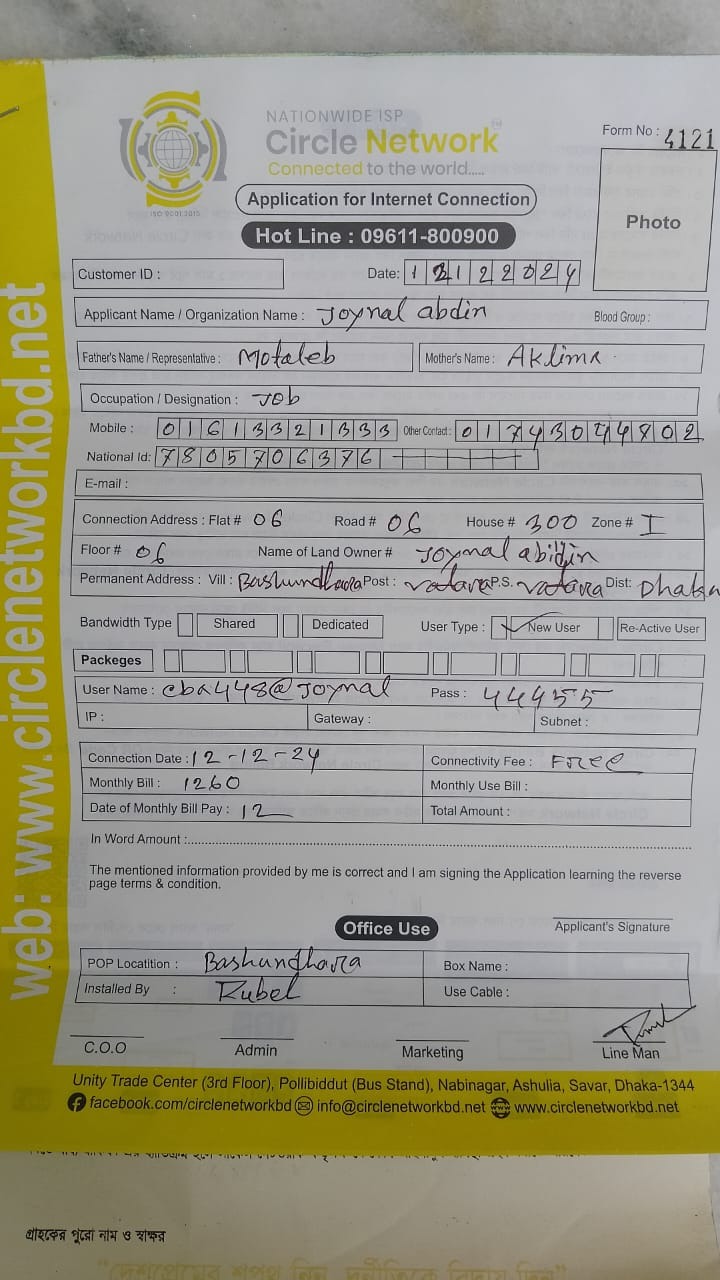 NATIONWIDE ISP
Circle Network
Connected to the world.....
ISO 9001:2015
Form No : 4121
Photo
Application for Internet Connection
Hot Line : 09611-800900
Customer ID :
Date: 12122024
Applicant Name / Organization Name : Joynal abdin Blood Group :
Father's Name / Representative : Motaleb Mother's Name : Aklima
Occupation / Designation : Job
Mobile : 01613321333 Other Contact : 01743044802
National Id: 7805706376
E-mail :
Connection Address : Flat # 06 Road # 06 House # 300 Zone # I
Floor # 06 Name of Land Owner # Joynal abidin
Permanent Address : Vill : Bashundhara Post : vatara P.S. vatara Dist: Dhaka
Bandwidth Type Shared Dedicated User Type : New User Re-Active User
Packeges
User Name : cba448@Joynal Pass : 44455
IP : Gateway : Subnet :
Connection Date : 12-12-24 Connectivity Fee : Free
Monthly Bill : 1260 Monthly Use Bill :
Date of Monthly Bill Pay : 12 Total Amount :
In Word Amount :
The mentioned information provided by me is correct and I am signing the Application learning the reverse
page terms & condition.
Office Use
Applicant's Signature
POP Locatition : Bashundhara Box Name :
Installed By : Rubel Use Cable :
C.O.O Admin Marketing Line Man
Unity Trade Center (3rd Floor), Pollibiddut (Bus Stand), Nabinagar, Ashulia, Savar, Dhaka-1344
facebook.com/circlenetworkbd info@circlenetworkbd.net www.circlenetworkbd.net
web: www.circlenetworkbd.net
গ্রাহকের পুরো নাম ও স্বাক্ষর